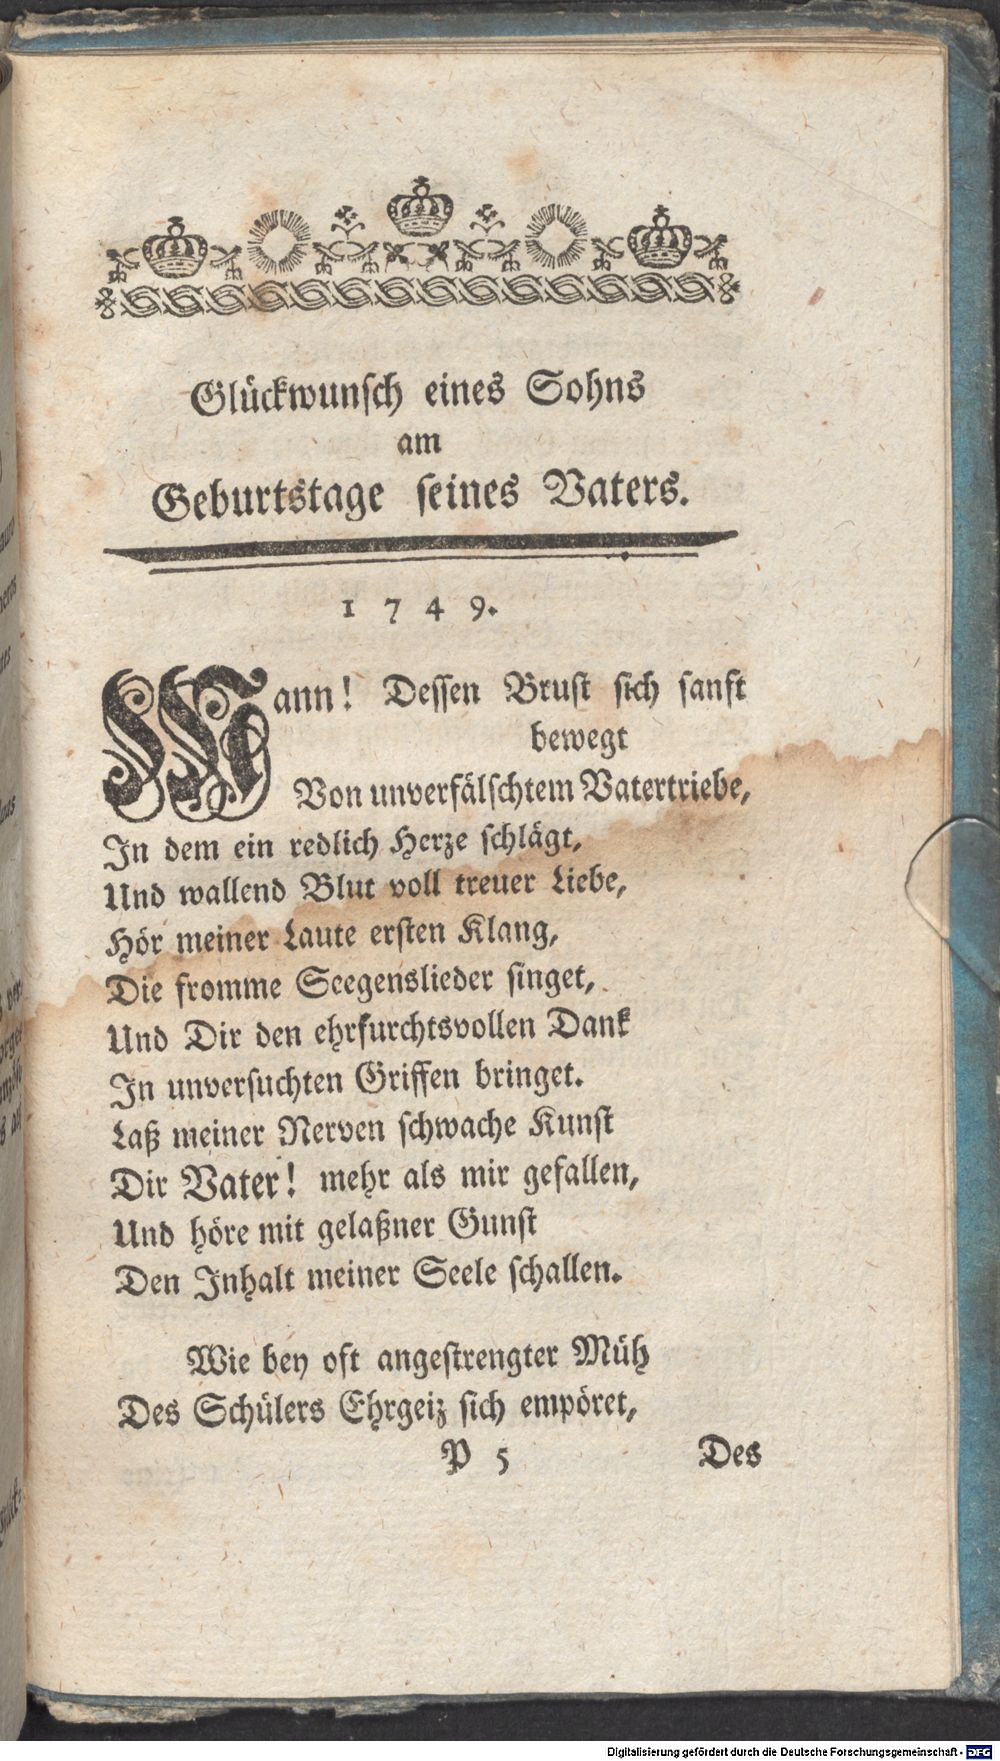 Glückwunsch eines Sohns
am
Geburtstage seines Vaters.
1749.
Mann! Dessen Brust sich sanft
bewegt
Von unverfälschtem Vatertriebe,
In dem ein redlich Herze schlägt,
Und wallend Blut voll treuer Liebe,
Hör meiner Laute ersten Klang,
Die fromme Seegenslieder singet,
Und Dir den ehrfurchtsvollen Dank
In unversuchten Griffen bringet.
Laß meiner Nerven schwache Kunst
Dir Vater! mehr als mir gefallen,
Und höre mit gelaßner Gunst
Den Inhalt meiner Seele schallen.
Wie bey oft angestrengter Müh
Des Schülers Ehrgeiz sich empöret,
P 5 Des
Digitalisierung gefördert durch die Deutsche Forschungsgemeinschaft - DFG